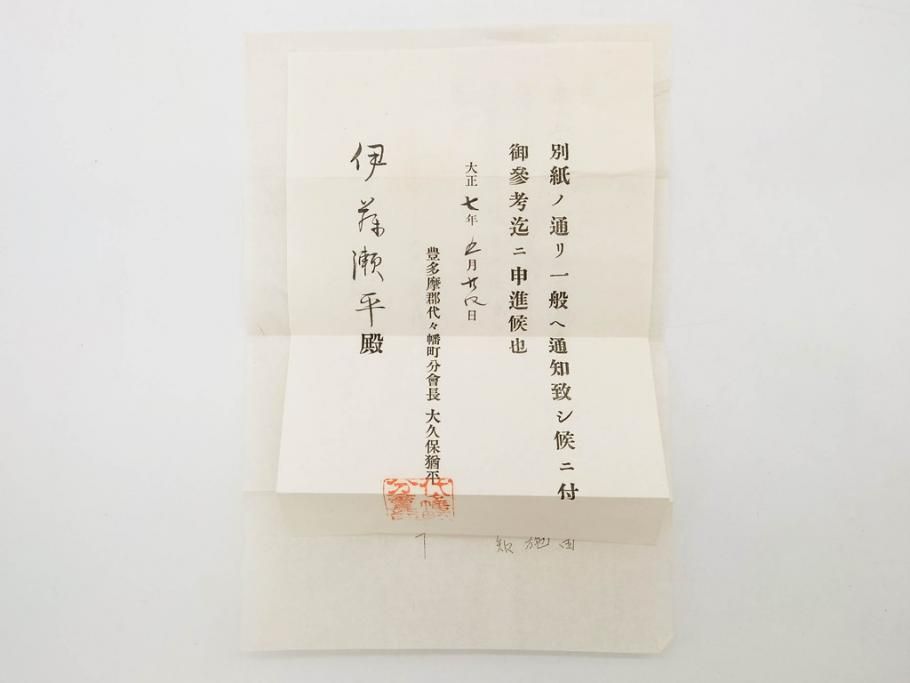 別紙ノ通リ一般ヘ通知致シ候ニ付
御參考迄ニ申進候也
大正七年五月廿八日
豊多摩郡代々幡町分會長 大久保猶平
伊藤瀬平殿